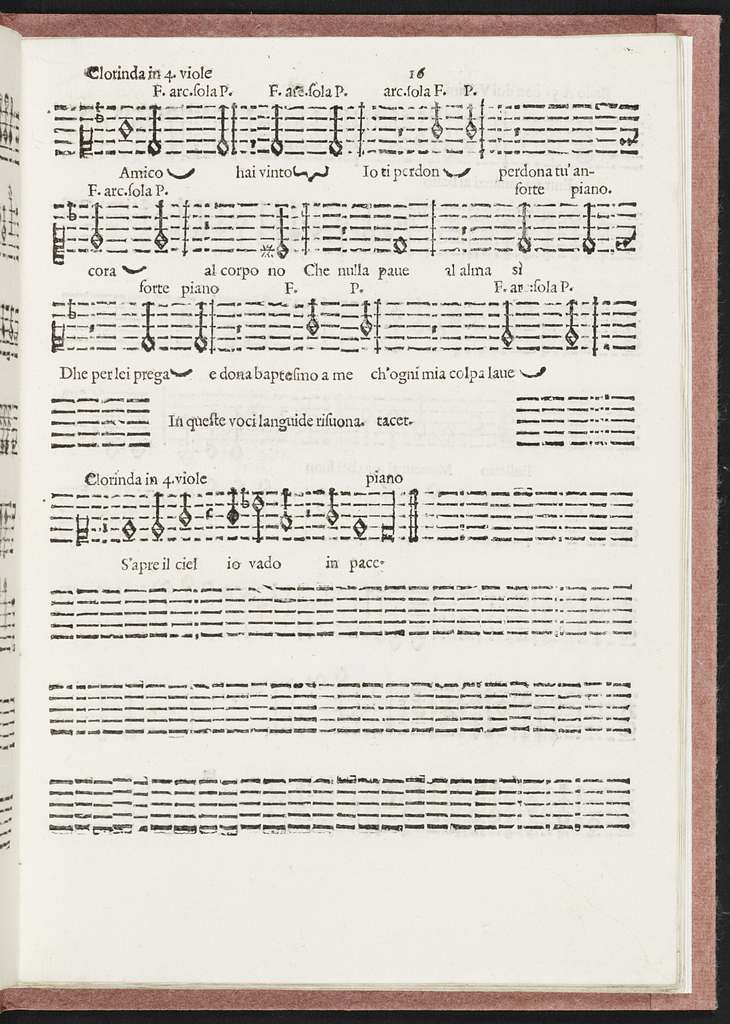 Clorinda in 4. viole 16
F. arc. sola P. F. arc. sola P. arc. sola F. P.
Amico hai vinto Io ti perdon perdona tu' an-
F. arc. sola P. forte piano.
cora al corpo no Che nulla paue al alma sì
forte piano F. P. F. arc. sola P.
Dhe per lei prega e dona baptesmo a me ch'ogni mia colpa laue
In queste voci languide risuona. tacet.
Clorinda in 4. viole piano
S'apre il ciel io vado in pace.